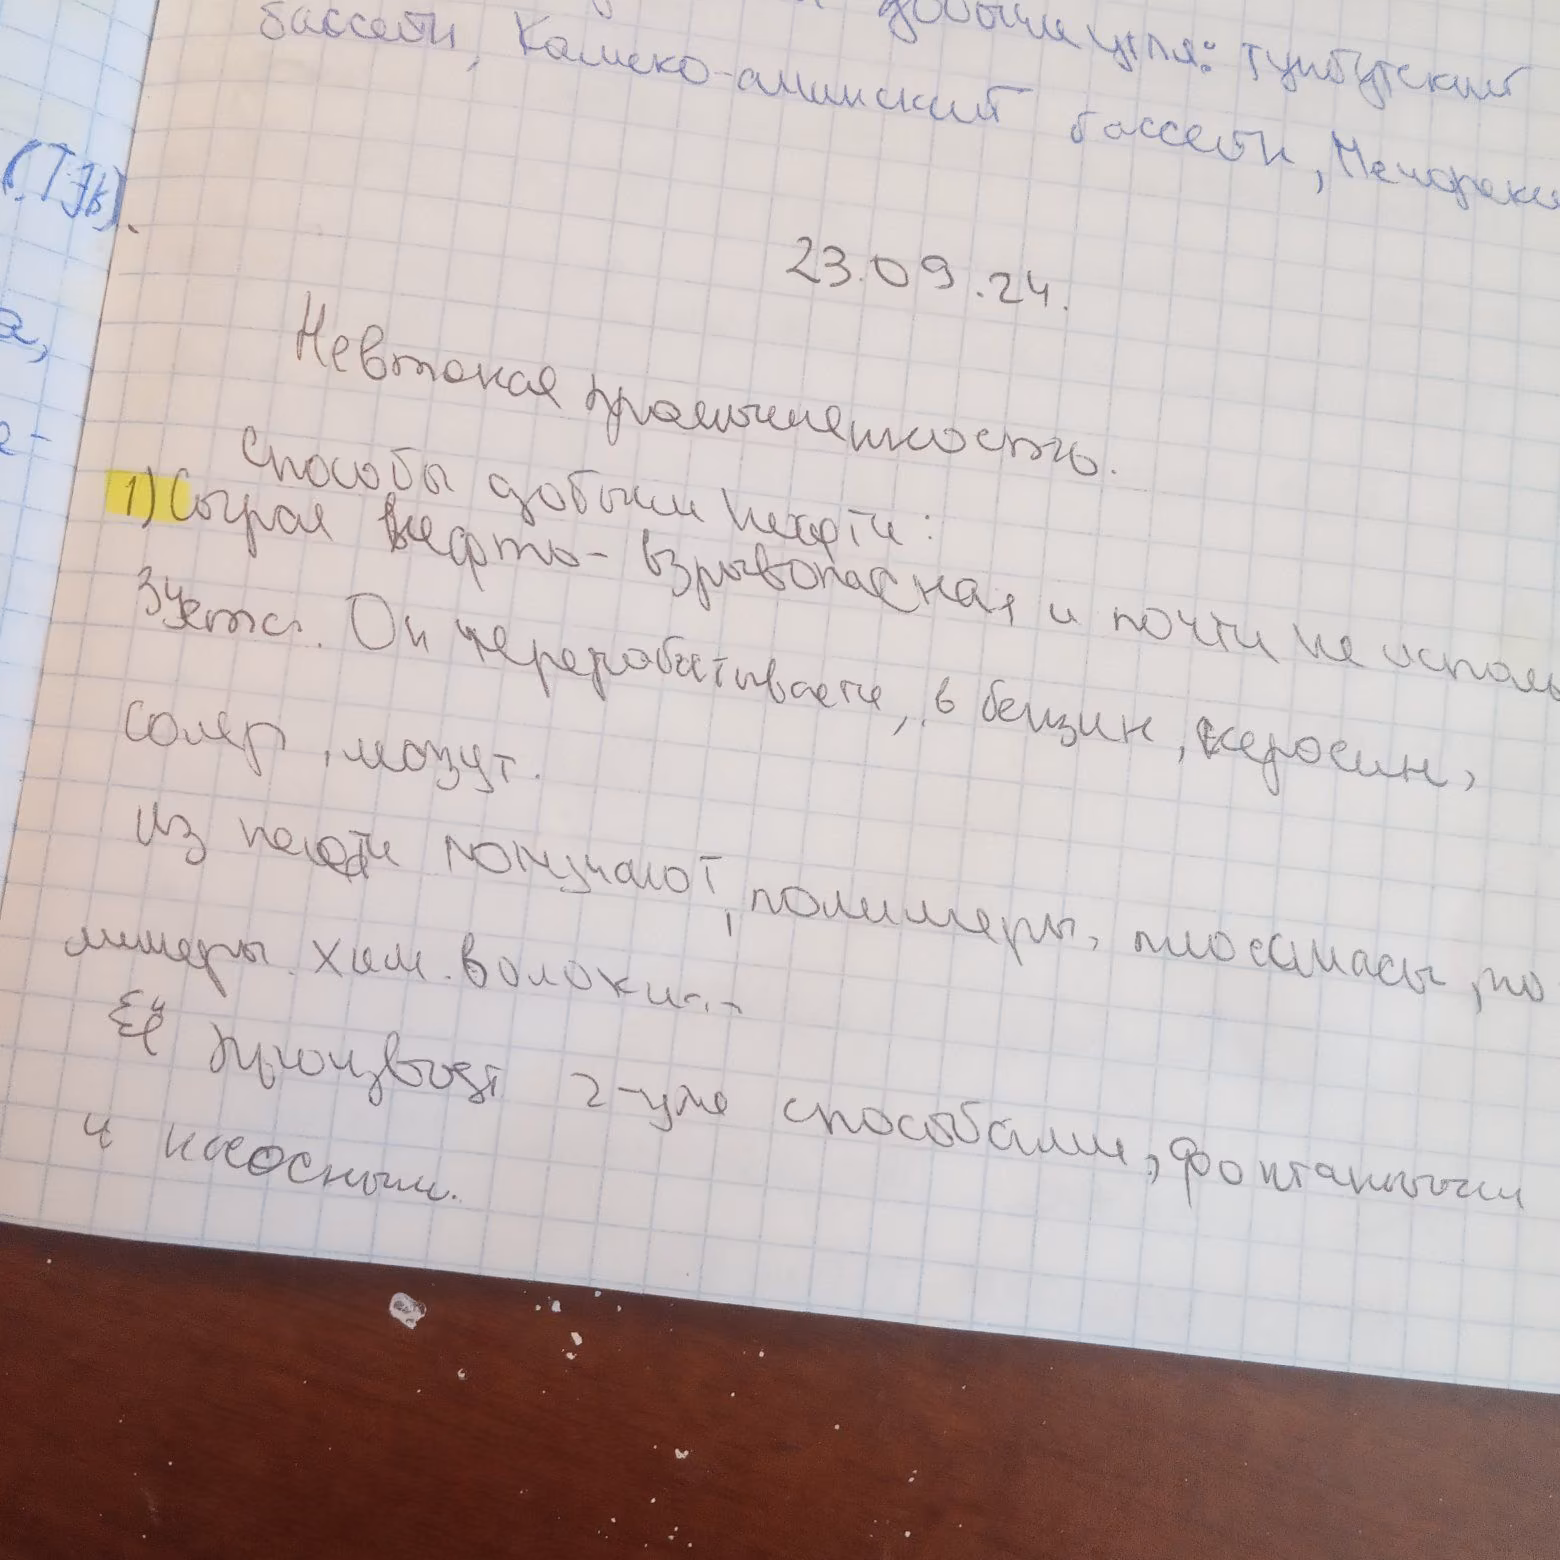 добычи угля: Тунгусский
бассейн, Канско-ачинский бассейн, Печорски
(ТЭК).
а,
23.09.24.
Невтяная промышленность.
Способы добычи нефти:
1) Сырая нефть - взрывопасная и почти не исполь
зуется. Он перерабатываете, в бензин, керосин,
соляр, мазут.
Из нефти получают, полимеры, пластмасы, по
лимеры. хим. волокна.
Её производят 2-умя способами, фонтанным
и насосным.